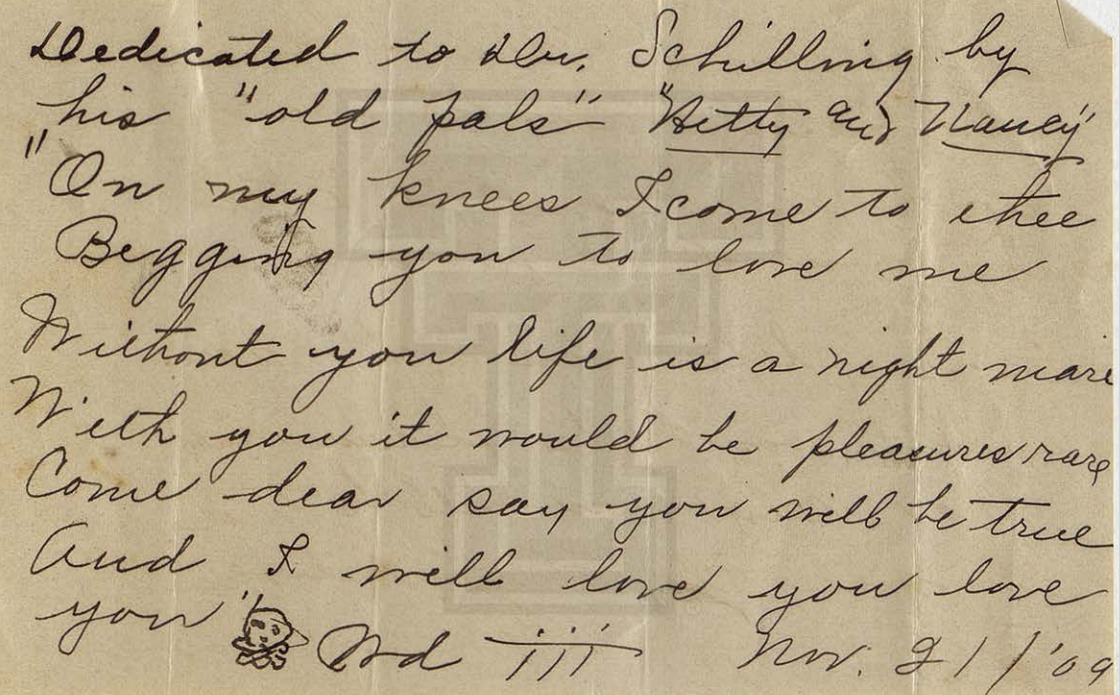 Dedicated to Dr. Schilling by
his "old pals" "Hetty and Nancy"
"On my knees I come to thee
Begging you to love me
Without you life is a night mare
With you it would be pleasures rare
Come dear say you will be true
And I will love you love
you"
Wd iii Nov. 21/'09